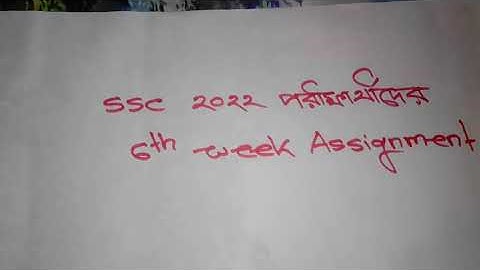 SSC ২০২২ পরীক্ষার্থীদের
6th week Assignment